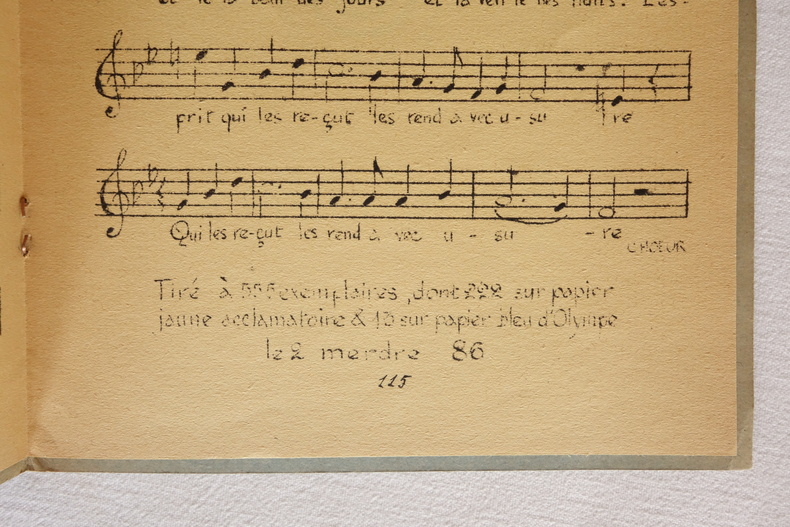 et la des jours et la des nuits. L'es-
prit qui les re-çut les rend a vec u - su re
Qui les re-çut les rend a vec u - su - re
CHOEUR
Tiré à 555 exemplaires, dont 222 sur papier
jaune acclamatoire & 13 sur papier bleu d'Olympe
le 2 merdre 86
115